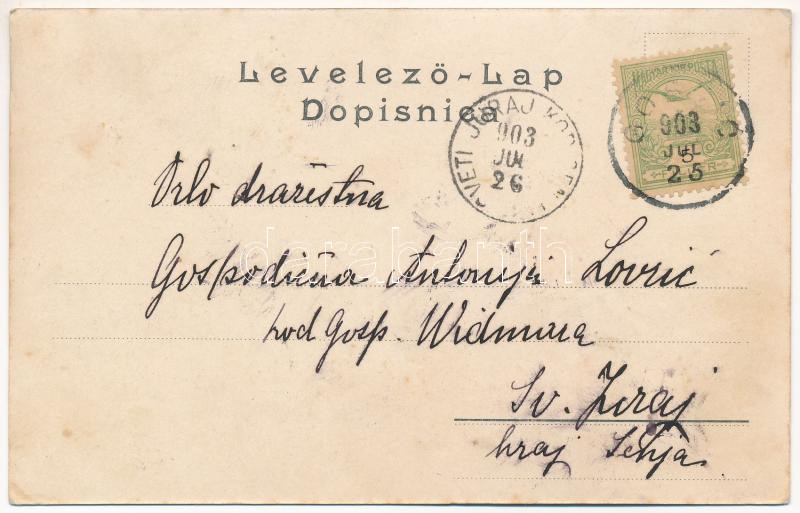 Levelező-Lap
Dopisnica
SVETI JURAJ KOD SENJ
903
JUL
26
MAGYAR KIR. POSTA
903
JUL
25
5
Vrlo dražestna
Gospodična Antonija Lovrić
kod Gosp. Widmara
Sv. Juraj
kraj Senja
darabanth